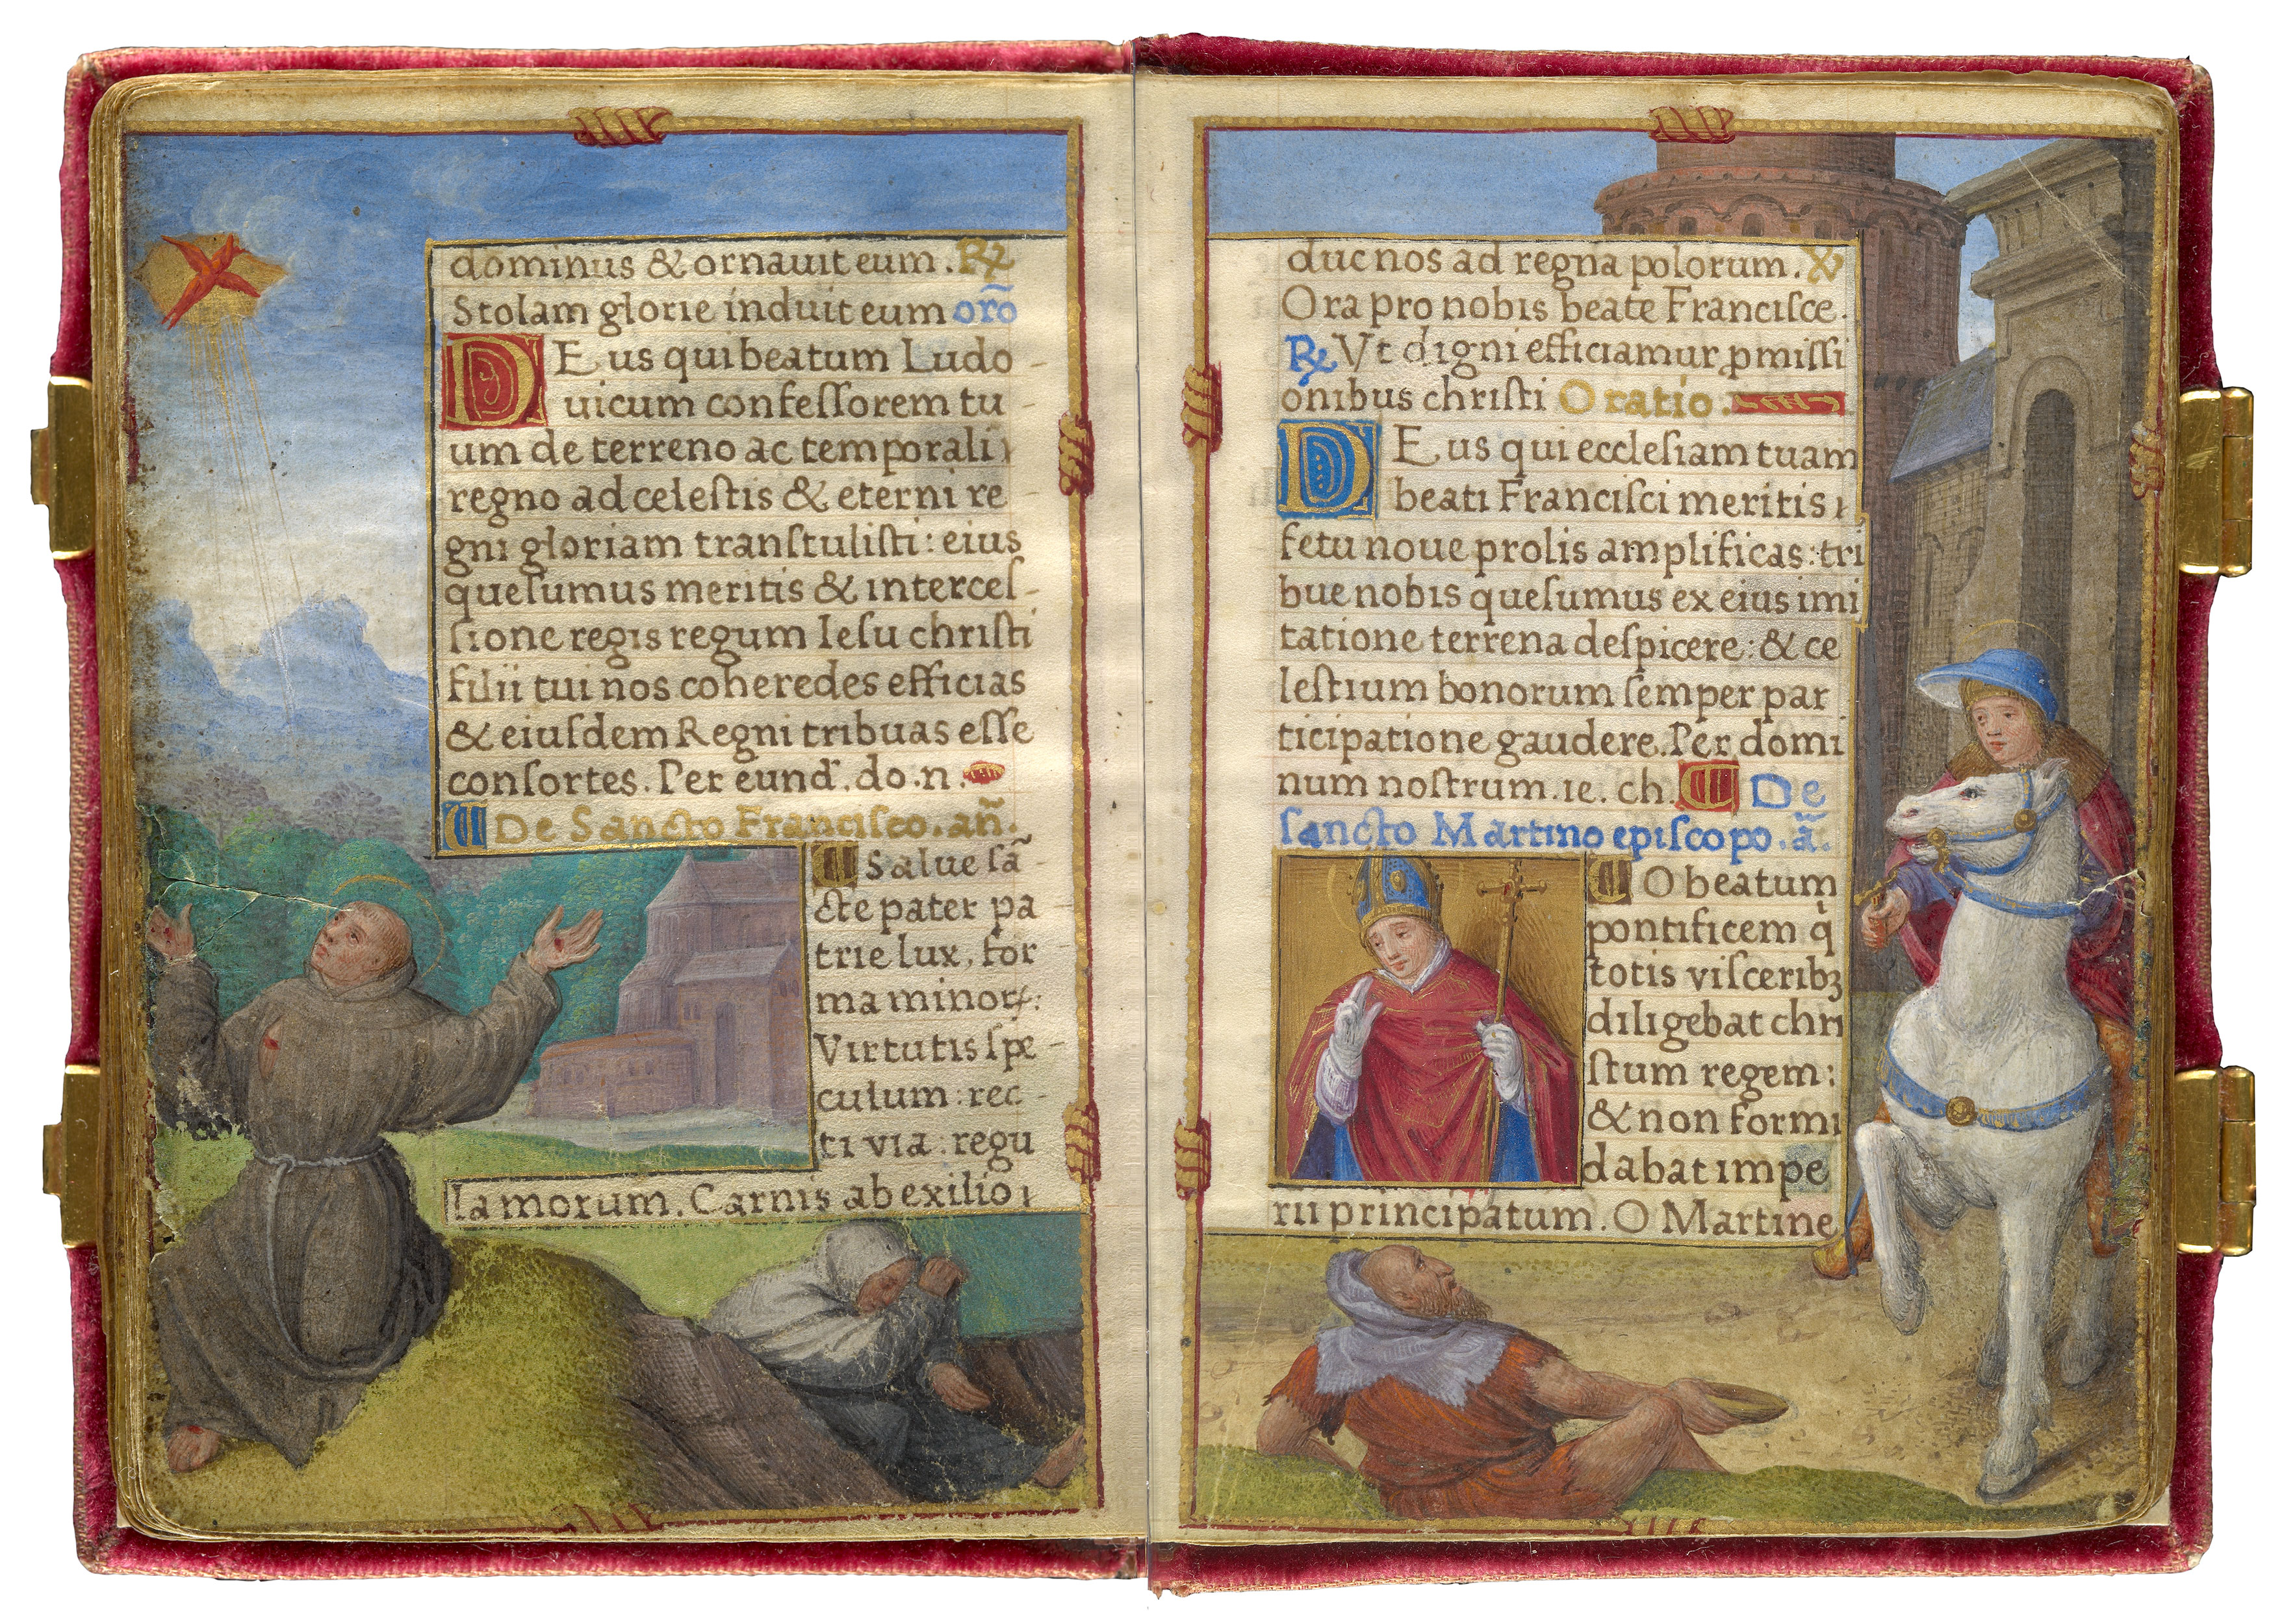 dominus & ornauit eum. ℟
Stolam glorie induit eum orō
DEus qui beatum Ludo-
uicum confeſſorem tu-
um de terreno ac temporali
regno ad celeſtis & eterni re-
gni gloriam tranſtuliſti: eius
queſumus meritis & interceſ-
ſione regis regum Ieſu chriſti
filii tui nos coheredes efficias
& eiuſdem Regni tribuas eſſe
conſortes. Per eund. do. n.
De Sancto Franciſco. añ.
Salue ſā-
cte pater pa
trie lux, for
ma minoꝝ:
Virtutis ſpe-
culum: rec-
ti via: regu
la morum. Carnis ab exilio
duc nos ad regna polorum. ℣
Ora pro nobis beate Franciſce.
℟ Vt digni efficiamur ꝓmiſſi
onibus chriſti Oratio.
DEus qui eccleſiam tuam
beati Franciſci meritis
fetu noue prolis amplificas: tri
bue nobis queſumus ex eius imi
tatione terrena deſpicere: & ce
leſtium bonorum ſemper par
ticipatione gaudere. Per domi
num noſtrum. ie. ch. De
ſancto Martino epiſcopo. ā.
O beatum
pontificem q̇
totis viſceribꝫ
diligebat chri
ſtum regem:
& non formi
dabat impe
rii principatum. O Martine